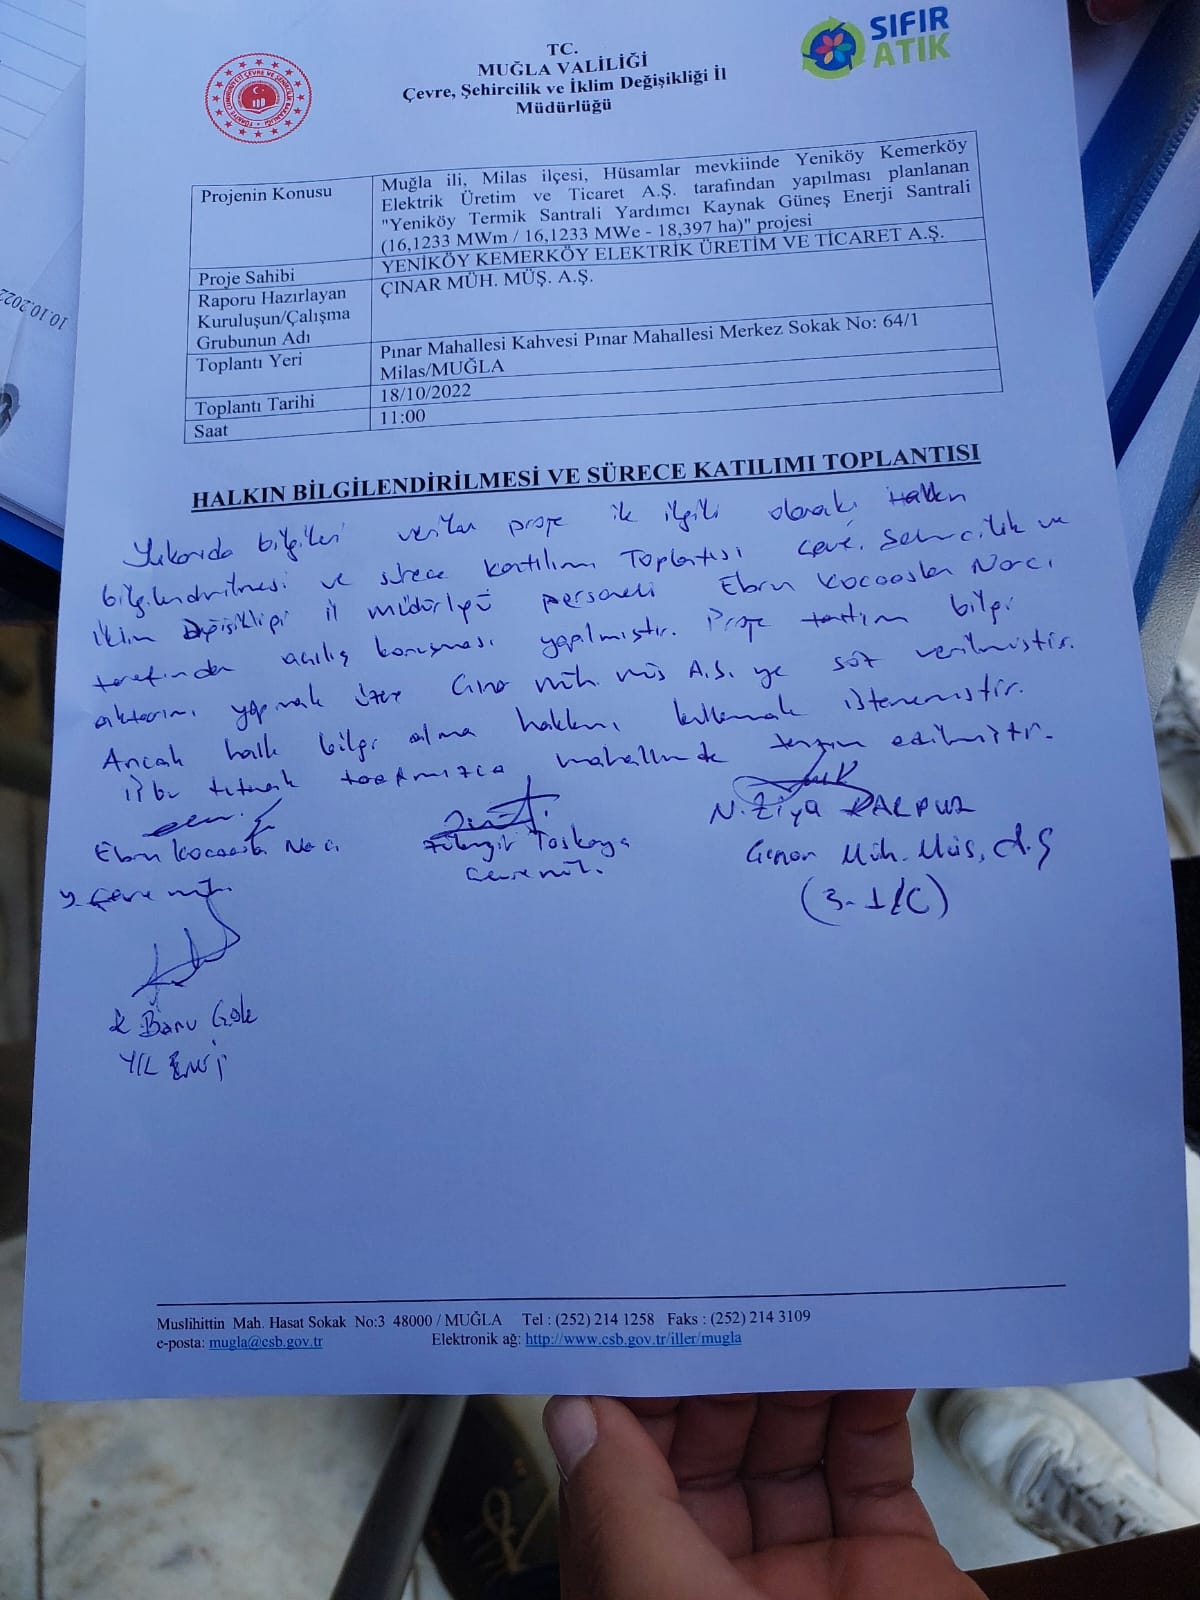 SIFIR
ATIK
TC.
MUĞLA VALİLİĞİ
Çevre, Şehircilik ve İklim Değişikliği İl
Müdürlüğü
Projenin Konusu
Muğla ili, Milas ilçesi, Hüsamlar mevkiinde Yeniköy Kemerköy
Elektrik Üretim ve Ticaret A.Ş. tarafından yapılması planlanan
"Yeniköy Termik Santrali Yardımcı Kaynak Güneş Enerji Santrali
(16,1233 MWm / 16,1233 MWe - 18,397 ha)" projesi
Proje Sahibi
YENİKÖY KEMERKÖY ELEKTRİK ÜRETİM VE TİCARET A.Ş.
Raporu Hazırlayan
Kuruluşun/Çalışma
Grubunun Adı
ÇINAR MÜH. MÜŞ. A.Ş.
Toplantı Yeri
Pınar Mahallesi Kahvesi Pınar Mahallesi Merkez Sokak No: 64/1
Milas/MUĞLA
Toplantı Tarihi
18/10/2022
Saat
11:00
10.10.2022
HALKIN BİLGİLENDİRİLMESİ VE SÜRECE KATILIMI TOPLANTISI
Yukarıda bilgileri verilen proje ile ilgili olarak Halkın
bilgilendirilmesi ve sürece katılımı Toplantısı Çevre, Şehircilik ve
İklim Değişikliği il müdürlüğü personeli Ebru Kocaaslan Narcı
tarafından açılış konuşması yapılmıştır. Proje tanıtım bilgi
aktarımı yapmak üzere Çınar müh. müş A.Ş. ye söz verilmiştir.
Ancak halk bilgi alma hakkını kullanmak istememiştir.
İşbu tutanak tarafımızca mahallinde tanzim edilmiştir.
Ebru Kocaaslan Narcı
Y. Çevre müh.
Taşkaya
Çevre müh.
N. Ziya KALPUZ
Çınar Müh. Müş. A.Ş
(3-1/C)
Banu Gök